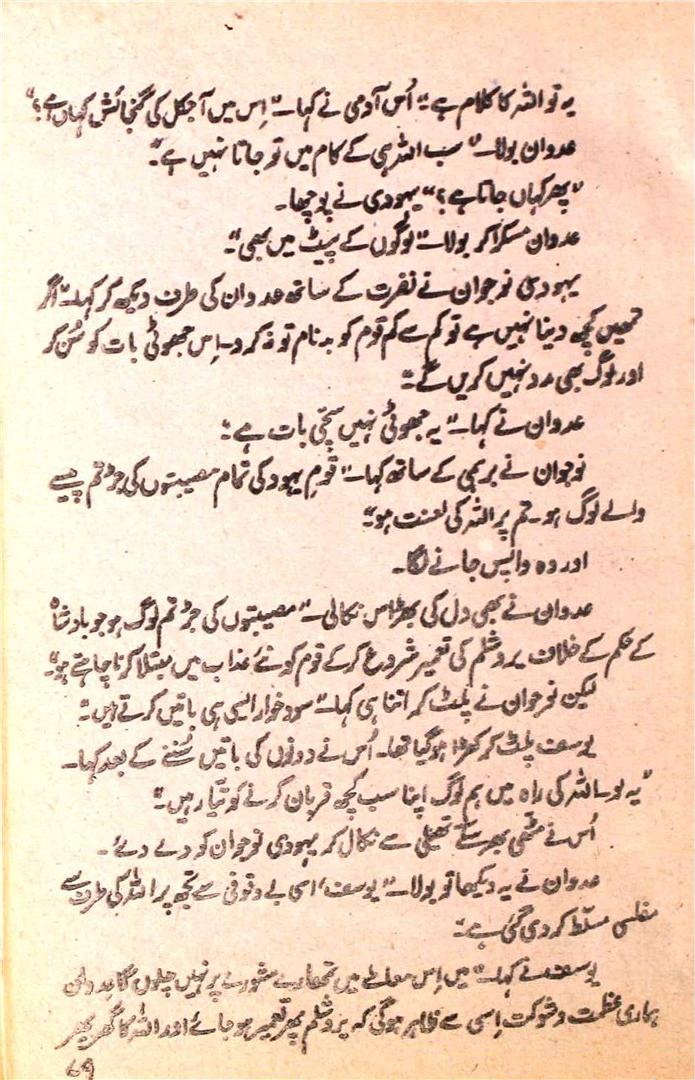 یہ تو اللہ کا کلام ہے۔" اُس آدمی نے کہا۔" اِس میں آجکل کی گنجائش کہاں ہے؟"
عدوان بولا۔" سب اللہ ہی کے کام میں تو جاتا نہیں ہے۔"
"پھر کہاں جاتا ہے؟" یہودی نے پوچھا۔
عدوان مسکرا کر بولا۔" لوگوں کے پیٹ میں بھی۔"
یہودی نوجوان نے نفرت کے ساتھ عدوان کی طرف دیکھ کر کہا۔" اگر
تمھیں کچھ دینا نہیں ہے تو کم سے کم قوم کو بدنام تو نہ کرو۔ اِس جھوٹی بات کو سُن کر
اور لوگ بھی مدد نہیں کریں گے۔"
عدوان نے کہا۔" یہ جھوٹی نہیں سچّی بات ہے۔"
نوجوان نے برہمی کے ساتھ کہا۔" قومِ یہود کی تمام مصیبتوں کی جڑ تم پیسے
والے لوگ ہو۔ تم پر اللہ کی لعنت ہو۔"
اور وہ واپس جانے لگا۔
عدوان نے بھی دل کی بھڑاس نکالی۔" مصیبتوں کی جڑ تم لوگ ہو جو بادشاہ
کے حکم کے خلاف یروشلم کی تعمیر شروع کر کے قوم کو نئے عذاب میں مبتلا کرنا چاہتے ہو۔"
لیکن نوجوان نے پلٹ کر اتنا ہی کہا۔" سود خوار ایسی ہی باتیں کرتے ہیں۔"
یوسف پلٹ کر کھڑا ہو گیا تھا۔ اُس نے دونوں کی باتیں سُننے کے بعد کہا۔
"یہ لو۔ اللہ کی راہ میں ہم لوگ اپنا سب کچھ قربان کرنے کو تیّار ہیں۔"
اُس نے مٹھی بھر سکّے تھیلی سے نکال کر یہودی نوجوان کو دے دئے۔
عدوان نے یہ دیکھا تو بولا۔" یوسف، اسی بے وقوفی سے تجھ پر اللہ کی طرف سے
مفلسی مسلّط کر دی گئی ہے۔"
یوسف نے کہا۔" میں اِس معاملے میں تمھارے مشورے پر نہیں چلوں گا عدوان
ہماری عظمت و شوکت اِسی سے ظاہر ہوگی کہ یروشلم پھر تعمیر ہو جائے اور اللہ کا گھر پھر
69